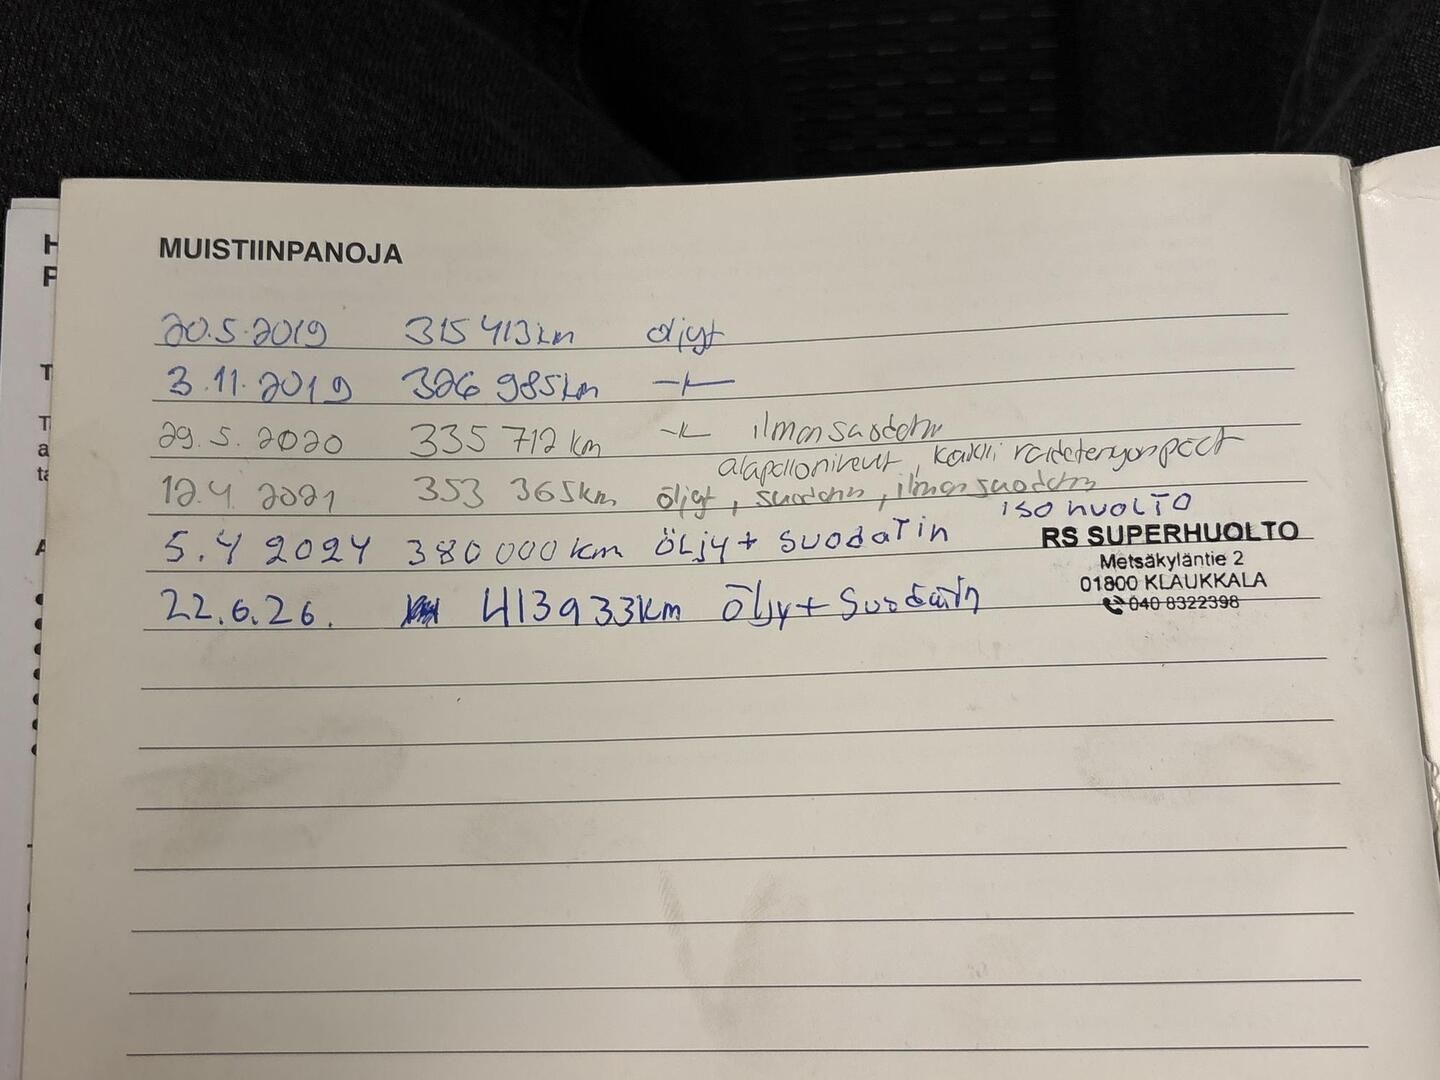 MUISTIINPANOJA
20.5.2019 315 413km öljyt
3.11.2019 326 985km —〃—
29.5.2020 335 712 km —〃— ilmansuodatin
alapallonivelet, kaikki raidetangonpäät
12.4 2021 353 365km öljyt, suodatin, ilmansuodatin
iso huolto
5.4 2024 380 000 km öljy + suodatin
RS SUPERHUOLTO
Metsäkyläntie 2
01800 KLAUKKALA
040 8322398
22.6.26. 413933km Öljy + Suodatin
H
P
T
T
a
ta
A